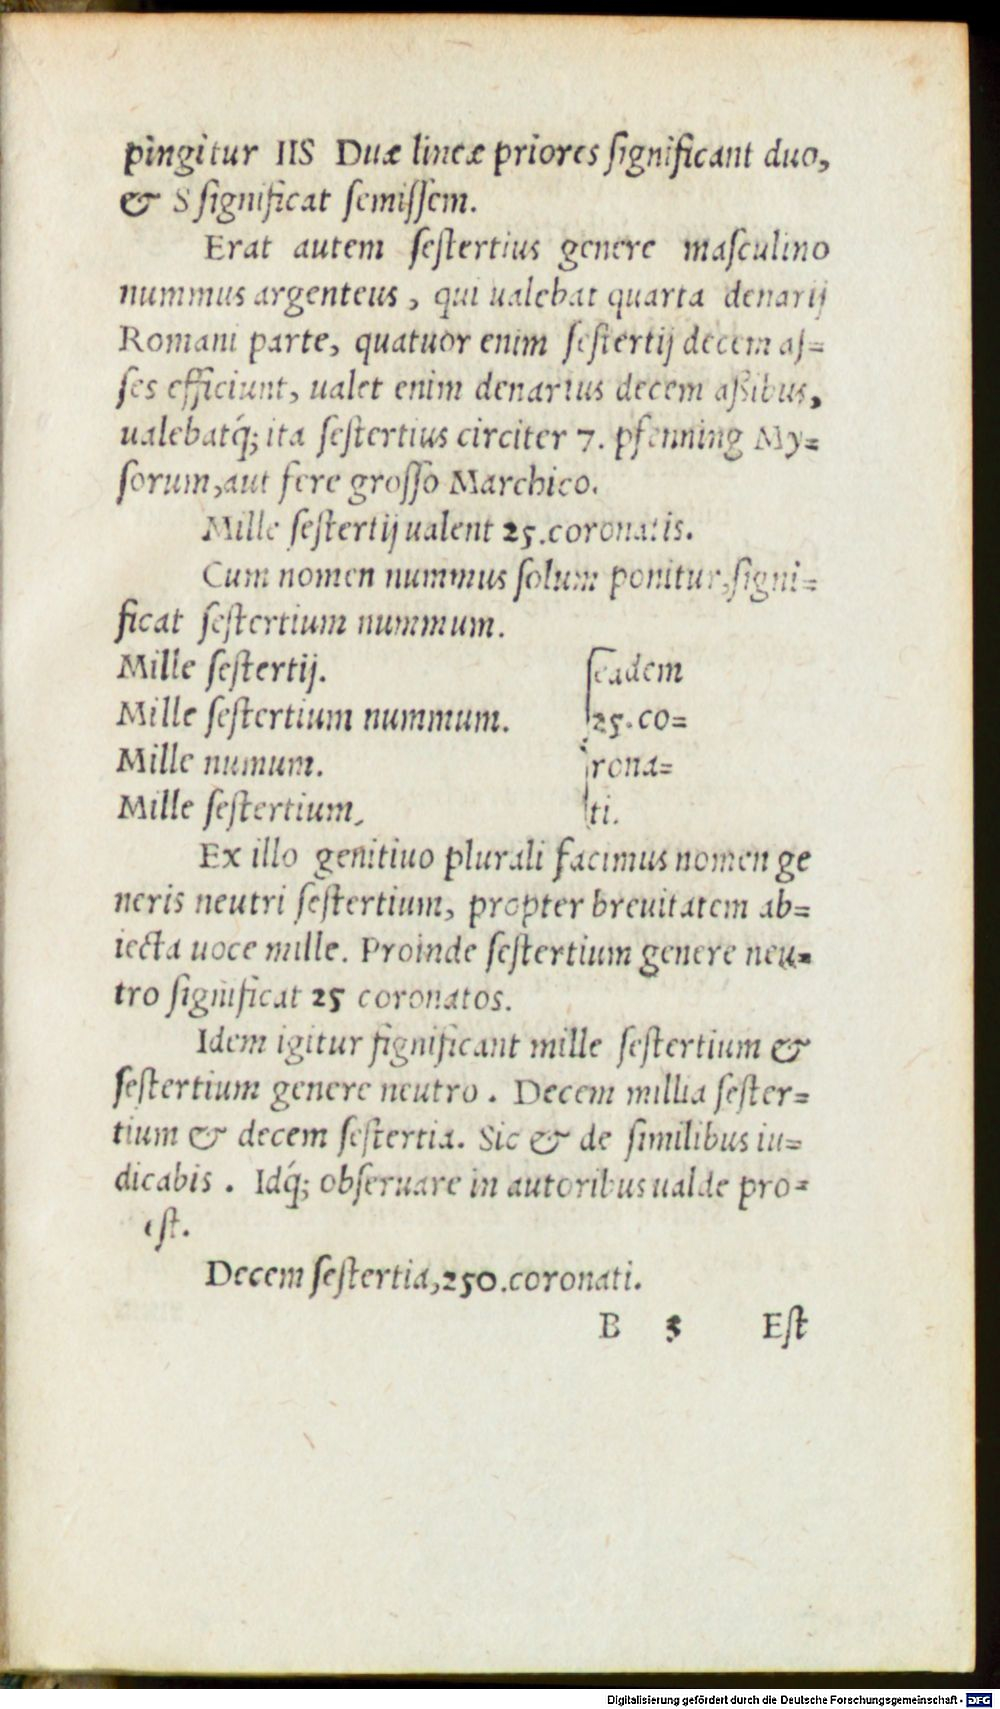 pingitur IIS Duæ lineæ priores ſignificant duo,
& S ſignificat ſemiſſem.
Erat autem ſeſtertius genere maſculino
nummus argenteus, qui ualebat quarta denarij
Romani parte, quatuor enim ſeſtertij decem aſ=
ſes efficiunt, ualet enim denarius decem aßibus,
ualebatq́; ita ſeſtertius circiter 7. pfenning My=
ſorum, aut fere groſſo Marchico.
Mille ſeſtertij ualent 25. coronatis.
Cum nomen nummus ſolum ponitur, ſigni=
ficat ſeſtertium nummum.
Mille ſeſtertij. eadem
Mille ſeſtertium nummum. 25. co=
Mille numum. rona=
Mille ſeſtertium. ti.
Ex illo genitiuo plurali facimus nomen ge
neris neutri ſeſtertium, propter breuitatem ab=
iecta uoce mille. Proinde ſeſtertium genere neu=
tro ſignificat 25 coronatos.
Idem igitur ſignificant mille ſeſtertium &
ſeſtertium genere neutro. Decem millia ſeſter=
tium & decem ſeſtertia. Sic & de ſimilibus iu=
dicabis. Idq́; obſeruare in autoribus ualde pro=
eſt.
Decem ſeſtertia, 250. coronati.
B 3 Eſt
Digitalisierung gefördert durch die Deutsche Forschungsgemeinschaft - DFG